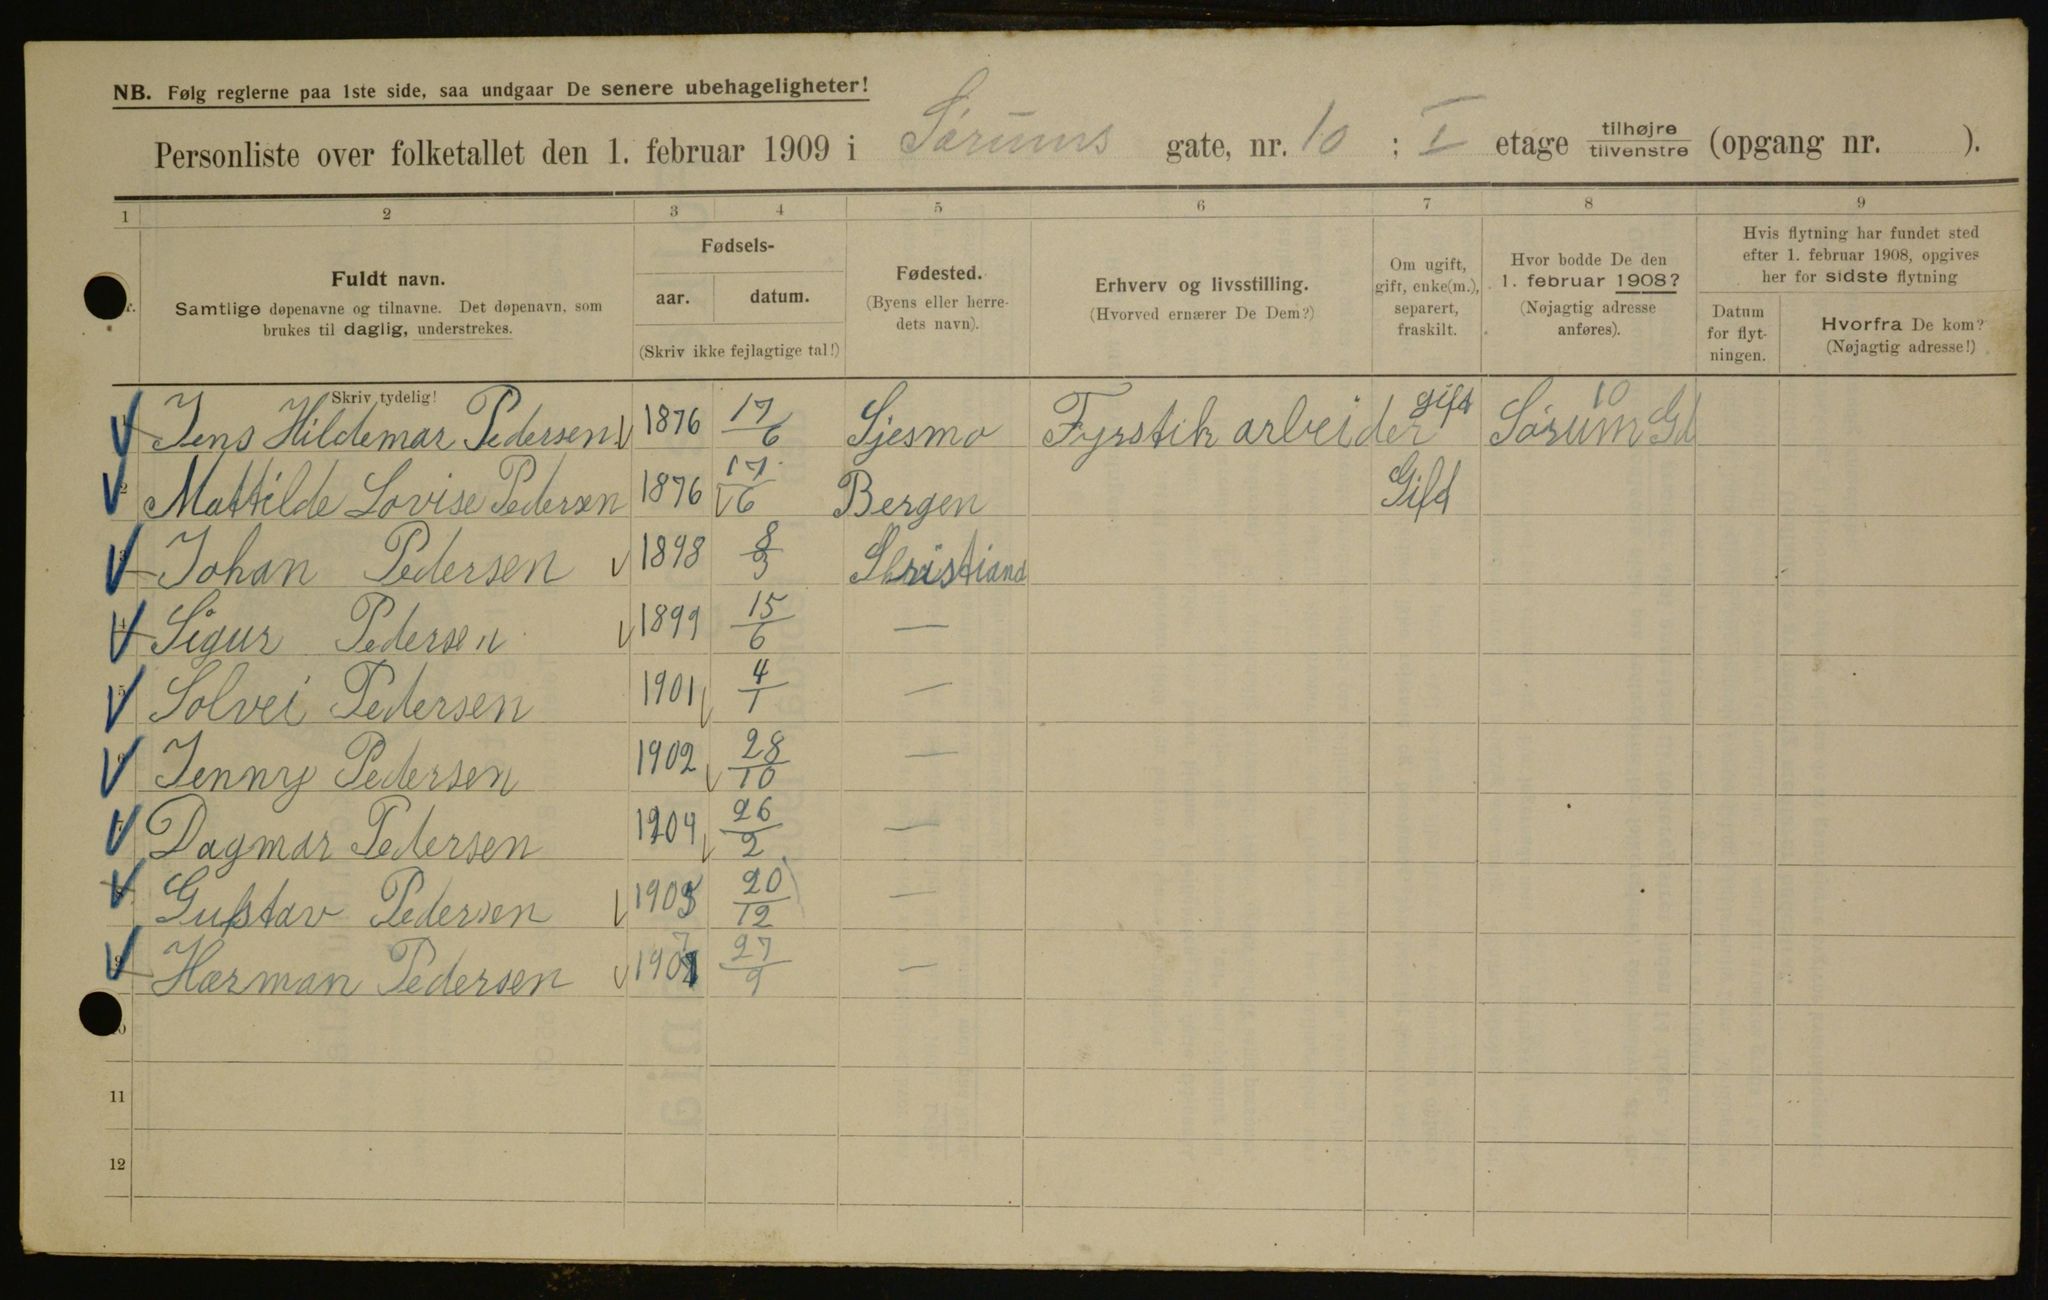 NB. Følg reglerne paa 1ste side, saa undgaar De senere ubehageligheter!
Personliste over folketallet den 1. februar 1909 i Sørums gate, nr. 10 ; I etage tilhøjre / tilvenstre (opgang nr. ).
1 2 3 4 5 6 7 8 9
Fuldt navn.
Samtlige døpenavne og tilnavne. Det døpenavn, som
brukes til daglig, understrekes.
Skriv tydelig!
Fødsels-
aar. datum.
(Skriv ikke fejlagtige tal!)
Fødested.
(Byens eller herre-
dets navn).
Erhverv og livsstilling.
(Hvorved ernærer De Dem?)
Om ugift,
gift, enke(m.),
separert,
fraskilt.
Hvor bodde De den
1. februar 1908?
(Nøjagtig adresse
anføres).
Hvis flytning har fundet sted
efter 1. februar 1908, opgives
her for sidste flytning
Datum
for flyt-
ningen.
Hvorfra De kom?
(Nøjagtig adresse!)
1 Jens Hildemar Pedersen 1876 17/6 Sjesmo Fyrstik arbeider gift Sørum Gd 10
2 Mattilde Lovise Pedersen 1876 17/6 Bergen Gift
3 Johan Pedersen 1898 8/3 Christiana
4 Sigur Pedersen 1899 15/6 —
5 Solvei Pedersen 1901 4/1 —
6 Jenny Pedersen 1902 28/10 —
7 Dagmar Pedersen 1904 26/2 —
8 Gustav Pedersen 1905 20/12 —
9 Herman Pedersen 1907 27/9 —
10
11
12